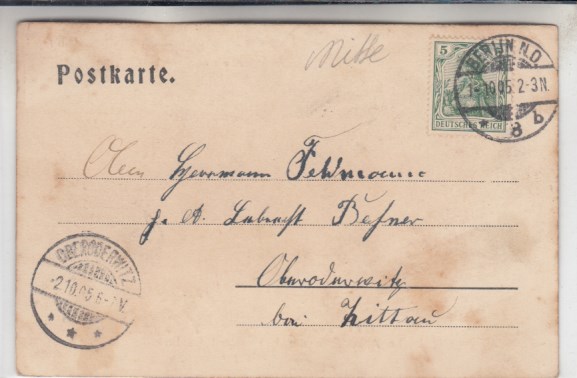 Mitte
Postkarte.
5
DEUTSCHES REICH
BERLIN N.O.
1-10.05.2-3N.
* 8 b
Herrmann Fehmann
Befner
OBERODERWITZ
-2.10.05.6-7V.
* * *
Oberoderwitz
bei Zittau